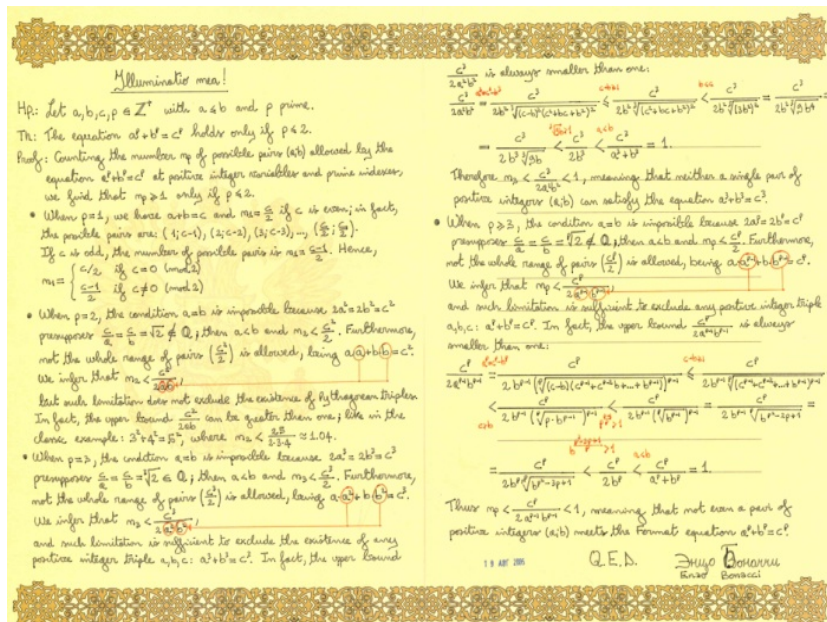 Illuminatio mea!
Hp.: Let a,b,c,p ∈ Z⁺ with a≤b and p prime.
Th.: The equation aᵖ+bᵖ=cᵖ holds only if p≤2.
Proof: Counting the number nₚ of possible pairs (a;b) allowed by the
equation aᵖ+bᵖ=cᵖ at positive integer variables and prime indexes,
we find that nₚ≥1 only if p≤2.
• When p=1, we have a+b=c and n₁=c/2 if c is even; in fact,
the possible pairs are: (1;c-1), (2;c-2), (3;c-3), ..., (c/2;c/2).
If c is odd, the number of possible pairs is n₁=(c-1)/2. Hence,
n₁= { c/2 if c≡0 (mod 2)
(c-1)/2 if c≢0 (mod 2)
• When p=2, the condition a=b is impossible because 2a²=2b²=c²
presupposes c/a=c/b=√2 ∉ Q; then a<b and n₂<c²/2. Furthermore,
not the whole range of pairs (c²/2) is allowed, being a·a+b·b=c².
We infer that n₂<c²/2ab,
but such limitation does not exclude the existence of Pythagorean triples.
In fact, the upper bound c²/2ab can be greater than one; like in the
classic example: 3²+4²=5², where n₂<25/2·3·4≈1.04.
• When p=3, the condition a=b is impossible because 2a³=2b³=c³
presupposes c/a=c/b=³√2 ∉ Q; then a<b and n₃<c³/2. Furthermore,
not the whole range of pairs (c³/2) is allowed, being a·a²+b·b²=c³.
We infer that n₃<c³/2a²b²,
and such limitation is sufficient to exclude the existence of any
positive integer triple a,b,c: a³+b³=c³. In fact, the upper bound
c³/2a²b² is always smaller than one:
Therefore n₃<c³/2a²b²<1, meaning that neither a single pair of
positive integers (a;b) can satisfy the equation a³+b³=c³.
• When p≥3, the condition a=b is impossible because 2aᵖ=2bᵖ=cᵖ
presupposes c/a=c/b=ᵖ√2 ∉ Q; then a<b and nₚ<cᵖ/2. Furthermore,
not the whole range of pairs (cᵖ/2) is allowed, being a·aᵖ⁻¹+b·bᵖ⁻¹=cᵖ.
We infer that nₚ<cᵖ/2aᵖ⁻¹bᵖ⁻¹,
and such limitation is sufficient to exclude any positive integer triple
a,b,c: aᵖ+bᵖ=cᵖ. In fact, the upper bound cᵖ/2aᵖ⁻¹bᵖ⁻¹ is always
smaller than one:
Thus nₚ<cᵖ/2aᵖ⁻¹bᵖ⁻¹<1, meaning that not even a pair of
positive integers (a;b) meets the Fermat equation aᵖ+bᵖ=cᵖ.
Q.E.D.
Энцо Боначчи
Enzo Bonacci